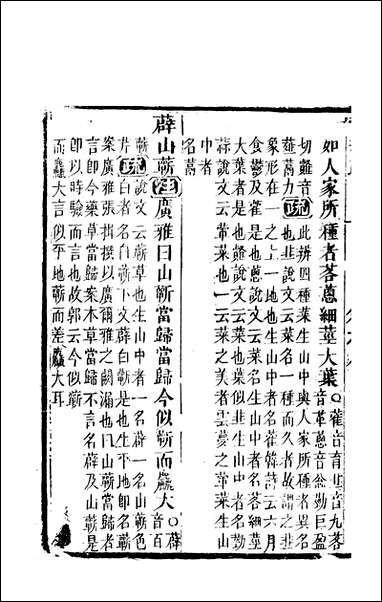 如人家所種者茖葱細莖大葉○藿音育韭音九茖
音革葱音怱勤巨盈
切薤音
蒚力疏此辨四種菜生山中與人家所種者異名
也韭說文云菜名一種而久者故謂之韭
象形在一之上一地也生山中者名藿韓詩云六月
食鬱及藿是也葱說文云菜名生山中者名茖細莖
大葉者是也薤說文云菜也葉似韭生山中者名勤
蒜說文云葷菜也一云菜之美者雲夢之葷菜生山
中者
名蒚
薜山蘄注廣雅曰山蘄當歸當歸今似蘄而麤大○薜
音百
蘄音
芹疏說文云蘄草也生山中者一名薜一名山蘄色
白者名白蘄下文薜白蘄是也生平地即名蘄
案廣雅張揖撰以廣爾雅之闕漏也云山蘄當歸者
言即今藥草當歸案本草當歸不言名薜及山蘄是
即以時驗而言也故郭云今似蘄
而麤大言似平地蘄而差麤大耳